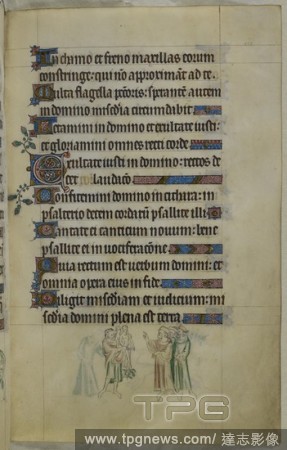 In chamo et freno maxillas eorum
constringe: qui nō approximāt ad te.
Multa flagella pctōris: sperantē autem
in domino miscdia circumdabit.
Letamini in domino et exultate iusti:
et gloriamini omnes recti corde.
Exultate iusti in domino: rectos de
cet collaudacō.
Confitemini domino in cithara: in
psalterio decem cordarū psallite illi.
Cantate ei canticum novum: bene
psallite ei in vociferacōne.
Quia rectum est verbum domini: et
omnia opera eius in fide.
Diligit miscdiam et iudicium: mi
scdia domini plena est terra.
TPG
www.tpgnews.com/ 達志影像